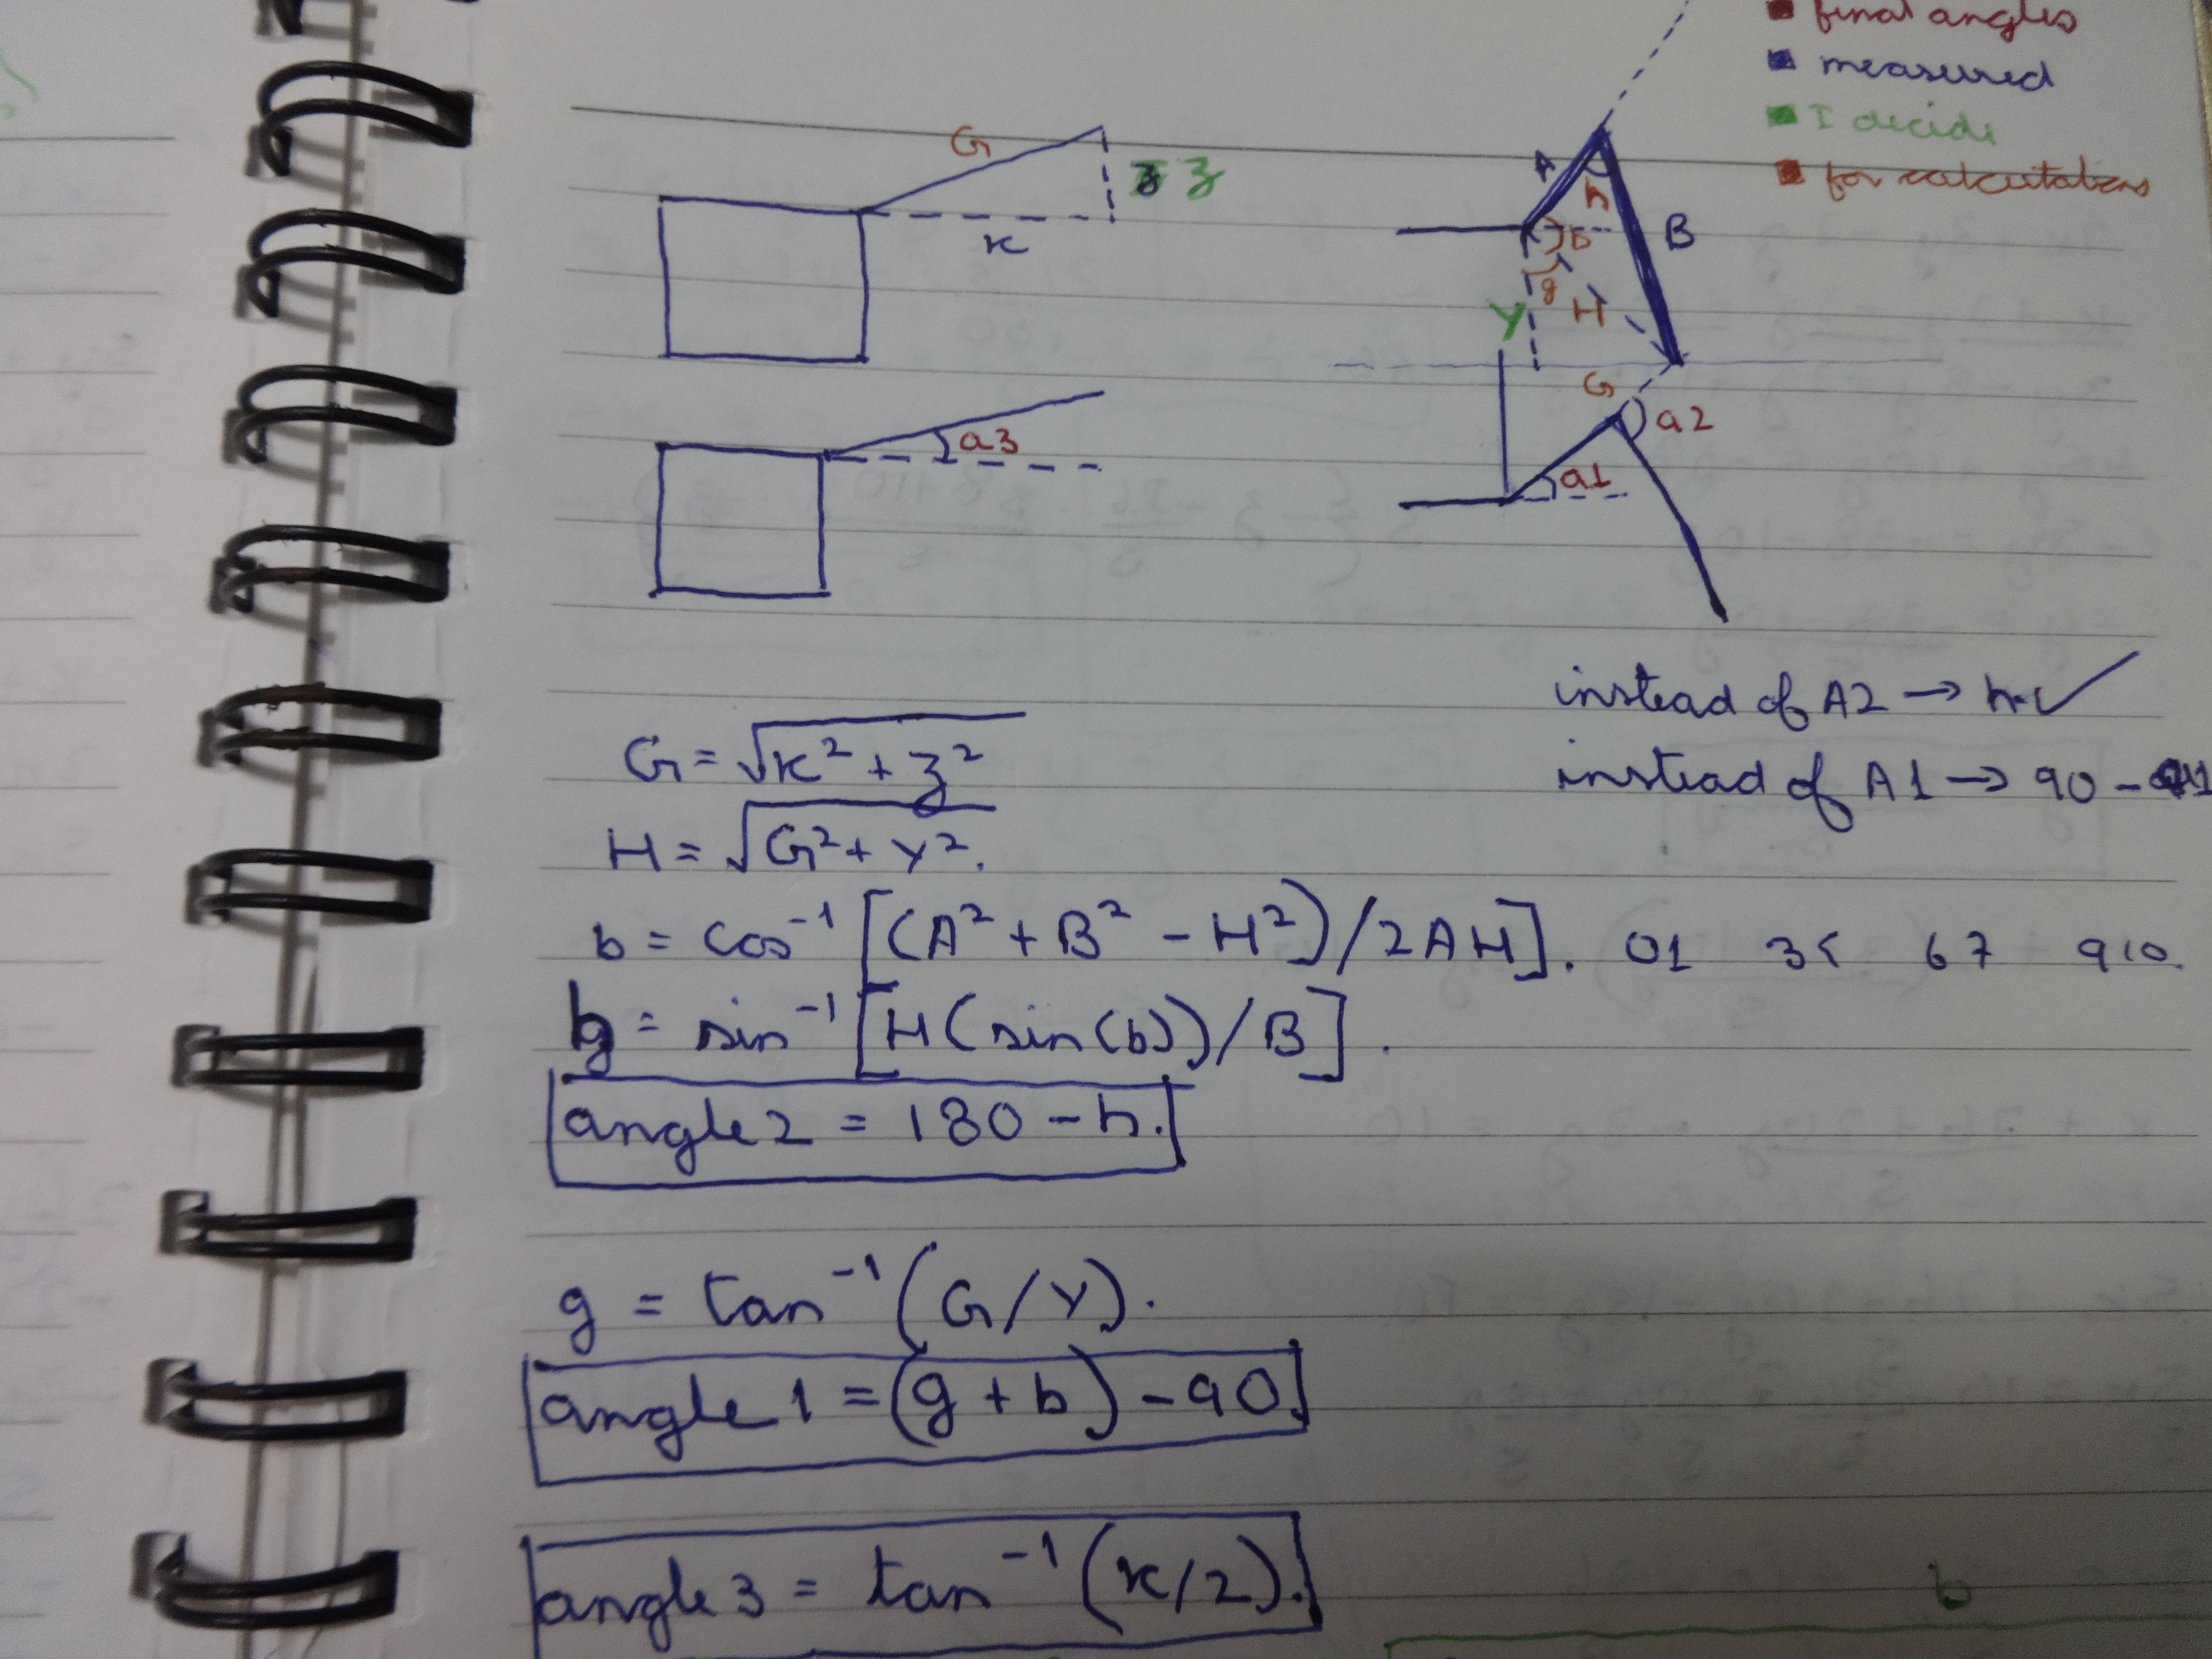 final angles
measured
I decide
for calculations
G
z
x
A
h
B
b
g
Y
H
G
a3
a2
a1
instead of A2 → h
instead of A1 → 90 -
G = √x² + z²
H = √G² + Y².
b = cos⁻¹ [(A² + B² - H²)/2AH]. 01 35 67 910.
h = sin⁻¹ [H(sin(b))/B].
angle 2 = 180 - h.
g = tan⁻¹ (G/Y).
angle 1 = (g + b) - 90.
angle 3 = tan⁻¹ (x/2).
b